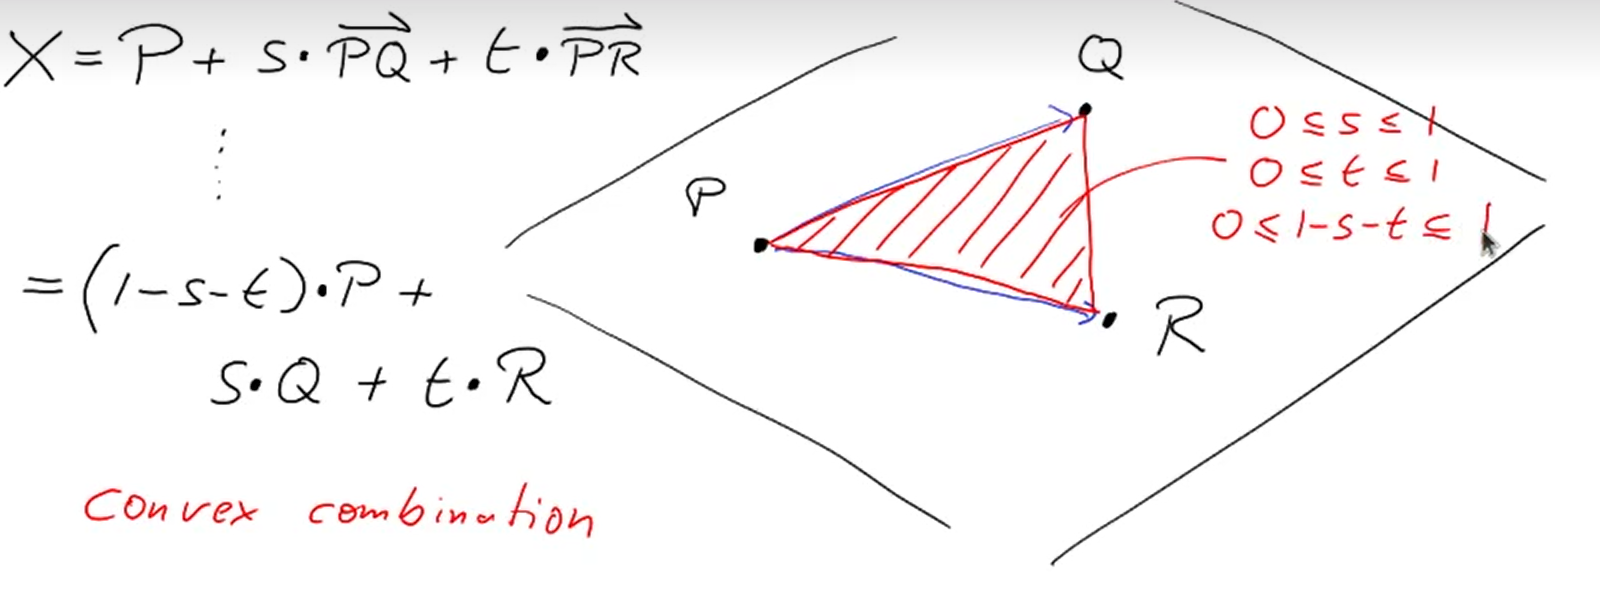 X = P + s · PQ⃗ + t · PR⃗
⋮
= (1-s-t) · P +
s · Q + t · R
convex combination
Q
P
R
0 ≤ s ≤ 1
0 ≤ t ≤ 1
0 ≤ 1-s-t ≤ 1